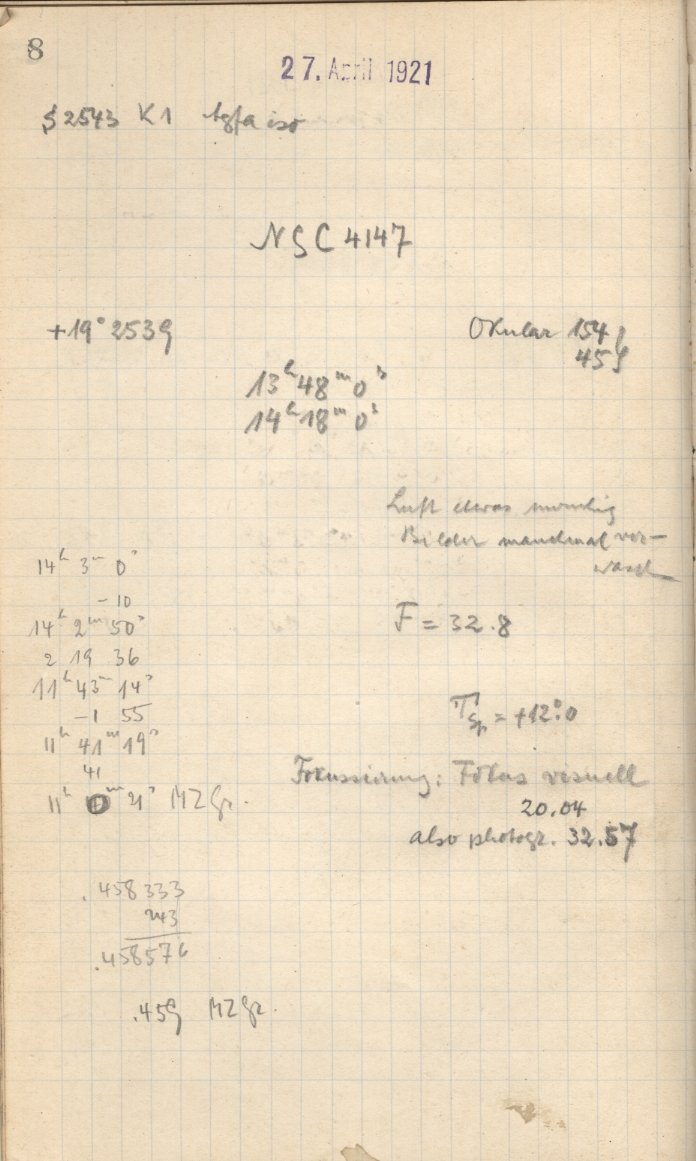 8
27. April 1921
S 2543 K1 Agfa iso
NGC 4147
+19° 2539
Okular 154
459
13h 48m 0s
14h 18m 0s
Luft etwas
Bilder manchmal ver-
wasch
14h 3m 0s
-10
14h 2m 50s
2 19 36
11h 43m 14s
-1 55
11h 41m 19s
41
11h 0m 21s MZGr.
F = 32.8
TSp. = +12°.0
Fokussierung: Fokus visuell
20.04
also photogr. 32.57
.458333
243
.458576
.459 MZGr.